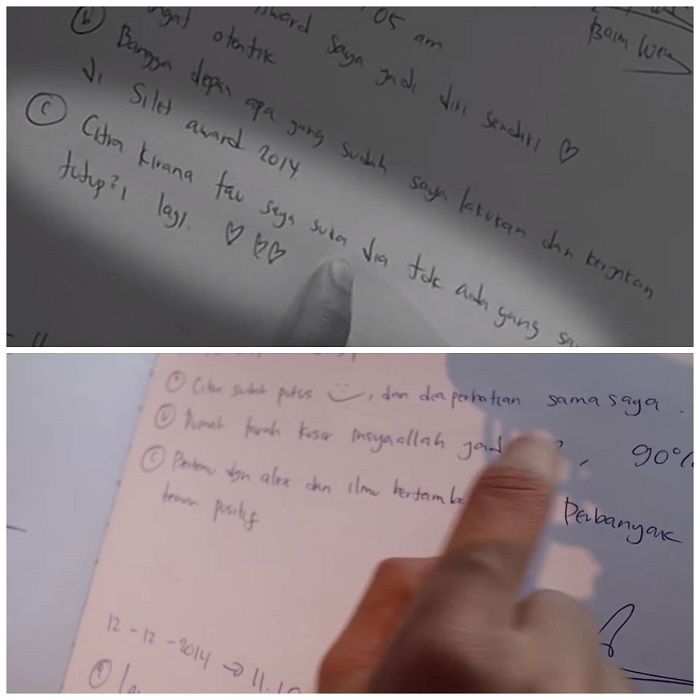 05 am
Baim Won
ingat award saya jadi diri sendiri ♡
otentik
(b) Bangga depan apa yang sudah saya lakukan dan kerjakan
di Silet award 2014
(c) Citra Kirana tau saya suka dia tdk ada yang sa
tutup², lagi. ♡ ♡♡
(a) Citra sudah putus , dan dia perhatian sama saya.
(b) Rumah tanah kusir insyaallah jad , 90%
(c) Bertemu dgn alex dan ilmu bertamba Perbanyak
teman positif
12-12-2014 → 11.10
(a)